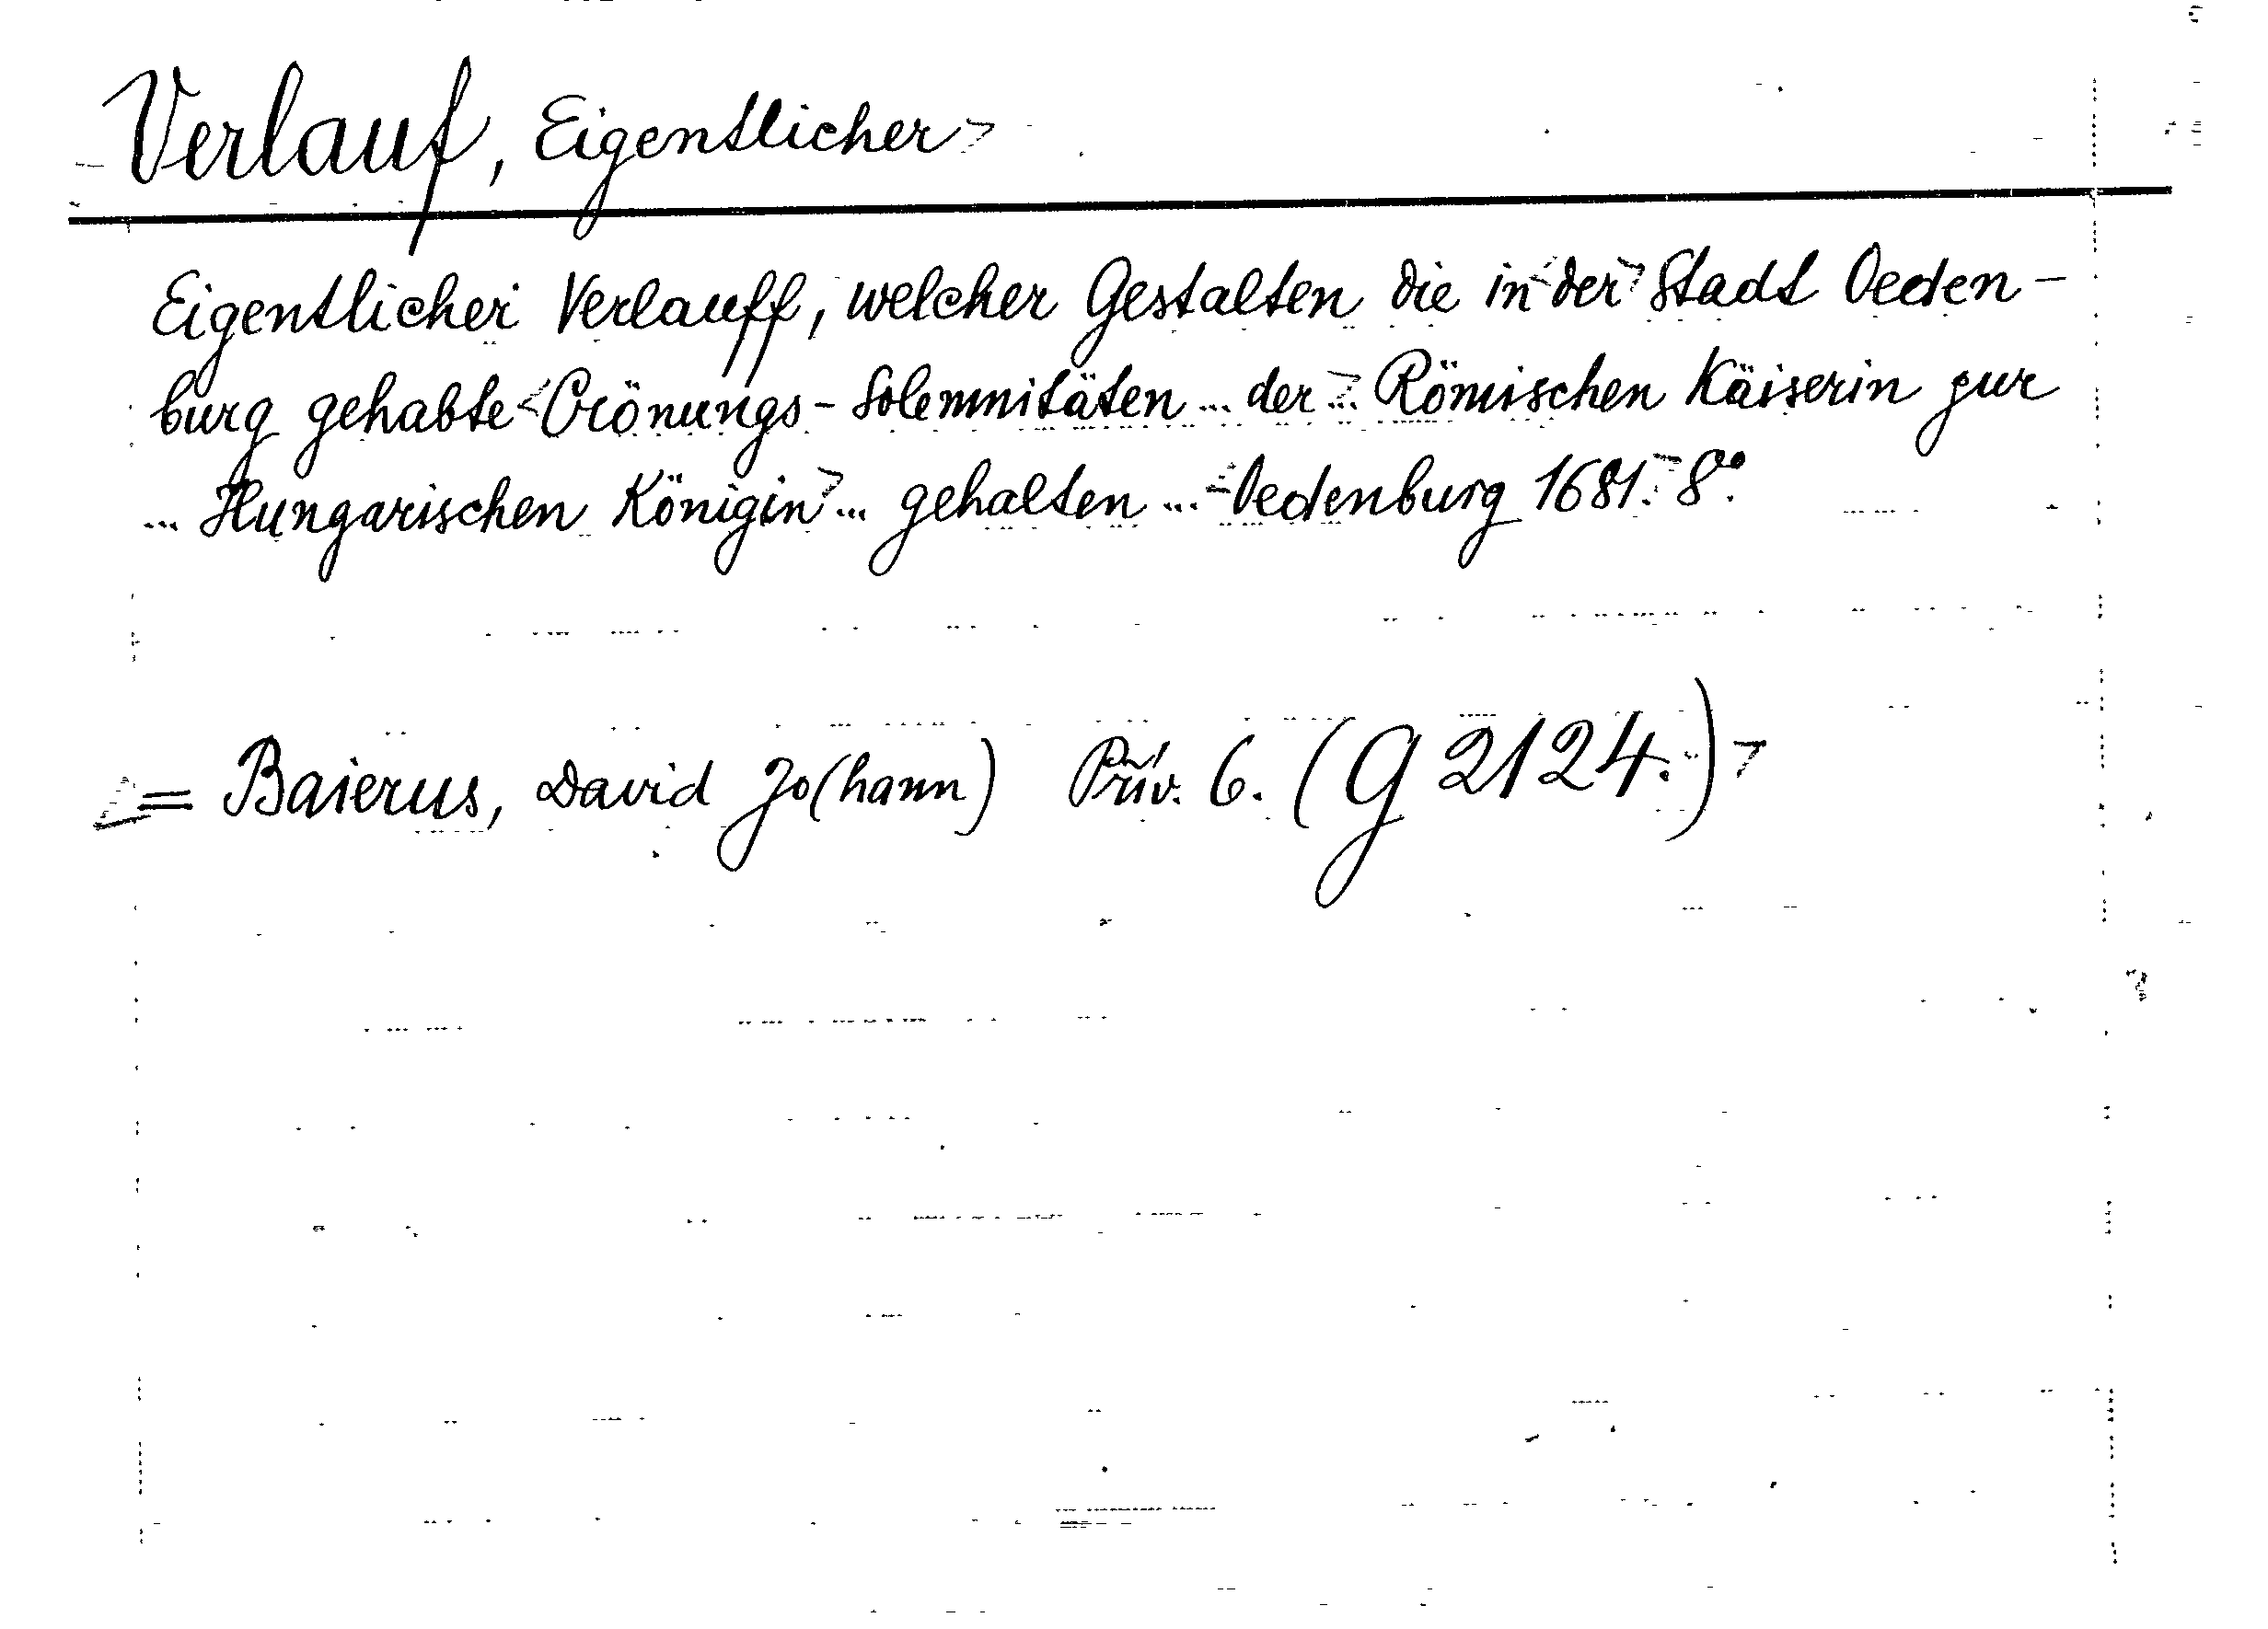 Verlauf, Eigentlicher
Eigentlicher Verlauff, welcher Gestalten die in der Stadt Oeden-
burg gehabte Crönungs-Solemnitäten ... der ... Römischen Käiserin zur
... Hungarischen Königin ... gehalten ... Oedenburg 1681. 8°.
= Baierus, David Jo(hann) Priv. 6. (G 2124.)